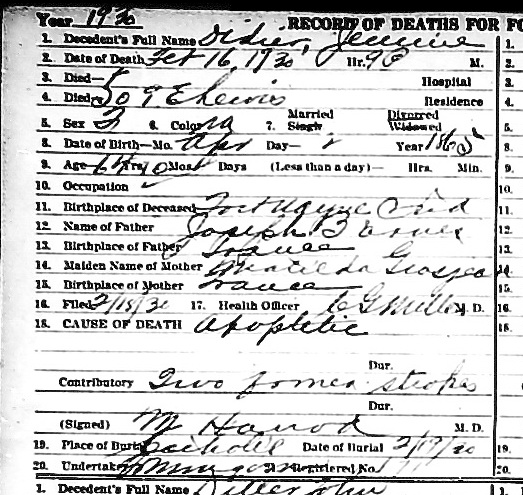 Year 1930 RECORD OF DEATHS FOR FO
1. Decedent's Full Name Didier, Jennie 1.
2. Date of Death Feb 16, 1930 Hr. M. 2.
3. Died— Hospital 3.
4. Died— E Lewis Residence 4.
5. Sex F 6. Color W 7. Married Single Divorced Widowed 5.
8. Date of Birth—Mo. Apr Day— Year 1865 8.
9. Age Yrs. 10 Mos. Days (Less than a day)— Hrs. Min. 9.
10. Occupation 10.
11. Birthplace of Deceased Fort Wayne Ind 11.
12. Name of Father Joseph 12.
13. Birthplace of Father France 13.
14. Maiden Name of Mother Matilda 14.
15. Birthplace of Mother France 15.
16. Filed 2/18/30 17. Health Officer Miller M. D. 16.
18. CAUSE OF DEATH Apopletic 18.
Dur.
Contributory Two former strokes
Dur.
(Signed) M Harrod M. D.
19. Place of Burial Catholic Date of Burial 2/19/30 19.
20. Undertaker Registered No. 20.
1. Decedent's Full Name John 1.